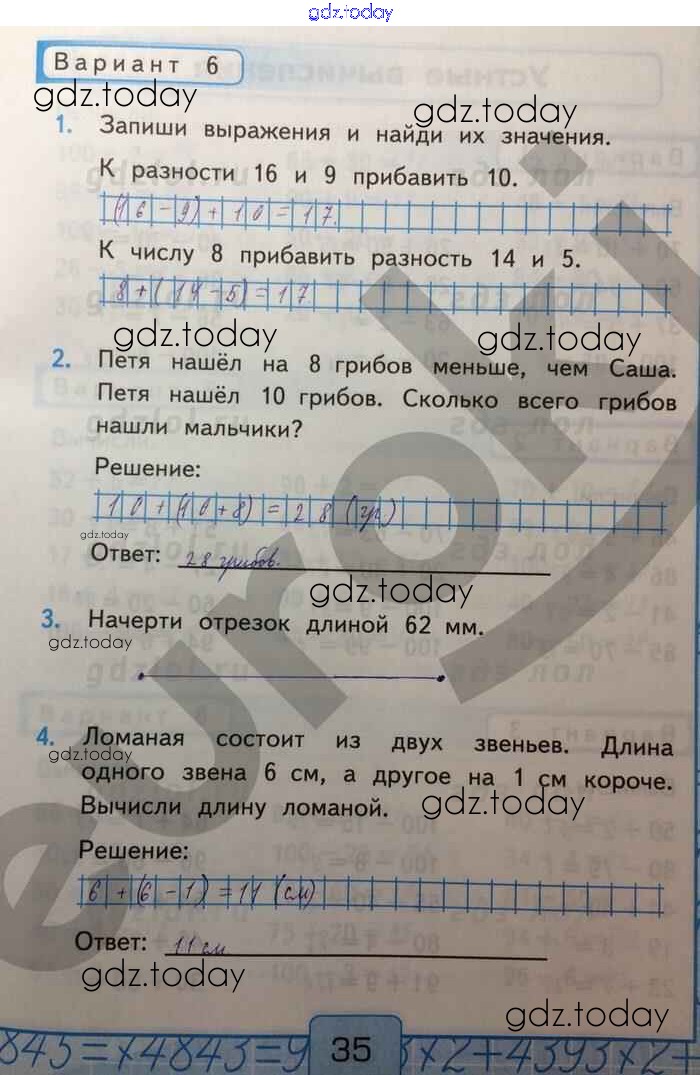 gdz.today
Вариант 6
gdz.today
gdz.today
1. Запиши выражения и найди их значения.
К разности 16 и 9 прибавить 10.
(16 - 9) + 10 = 17.
К числу 8 прибавить разность 14 и 5.
8 + (14 - 5) = 17.
gdz.today
gdz.today
2. Петя нашёл на 8 грибов меньше, чем Саша.
Петя нашёл 10 грибов. Сколько всего грибов
нашли мальчики?
Решение:
10 + (10 + 8) = 28 (гр)
gdz.today
Ответ: 28 грибов.
gdz.today
3. Начерти отрезок длиной 62 мм.
gdz.today
4. Ломаная состоит из двух звеньев. Длина
gdz.today
одного звена 6 см, а другое на 1 см короче.
Вычисли длину ломаной.
gdz.today
Решение:
6 + (6 - 1) = 11 (см)
Ответ: 11 см
gdz.today
gdz.today
845=x4843=9 35 3x2+4393x2+
euroki